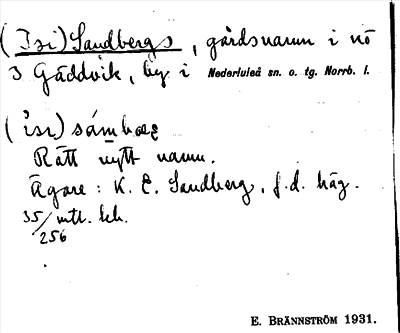 (Isi) Sandbergs, gårdsnamn i nö
3 Gäddvik, by i Nederluleå sn. o. tg. Norrb. l.
(isi) sámbæg
Rätt nytt namn.
Ägare: K. E. Sandberg, f.d. häg.
35/256 mtl.
E. BRÄNNSTRÖM 1931.